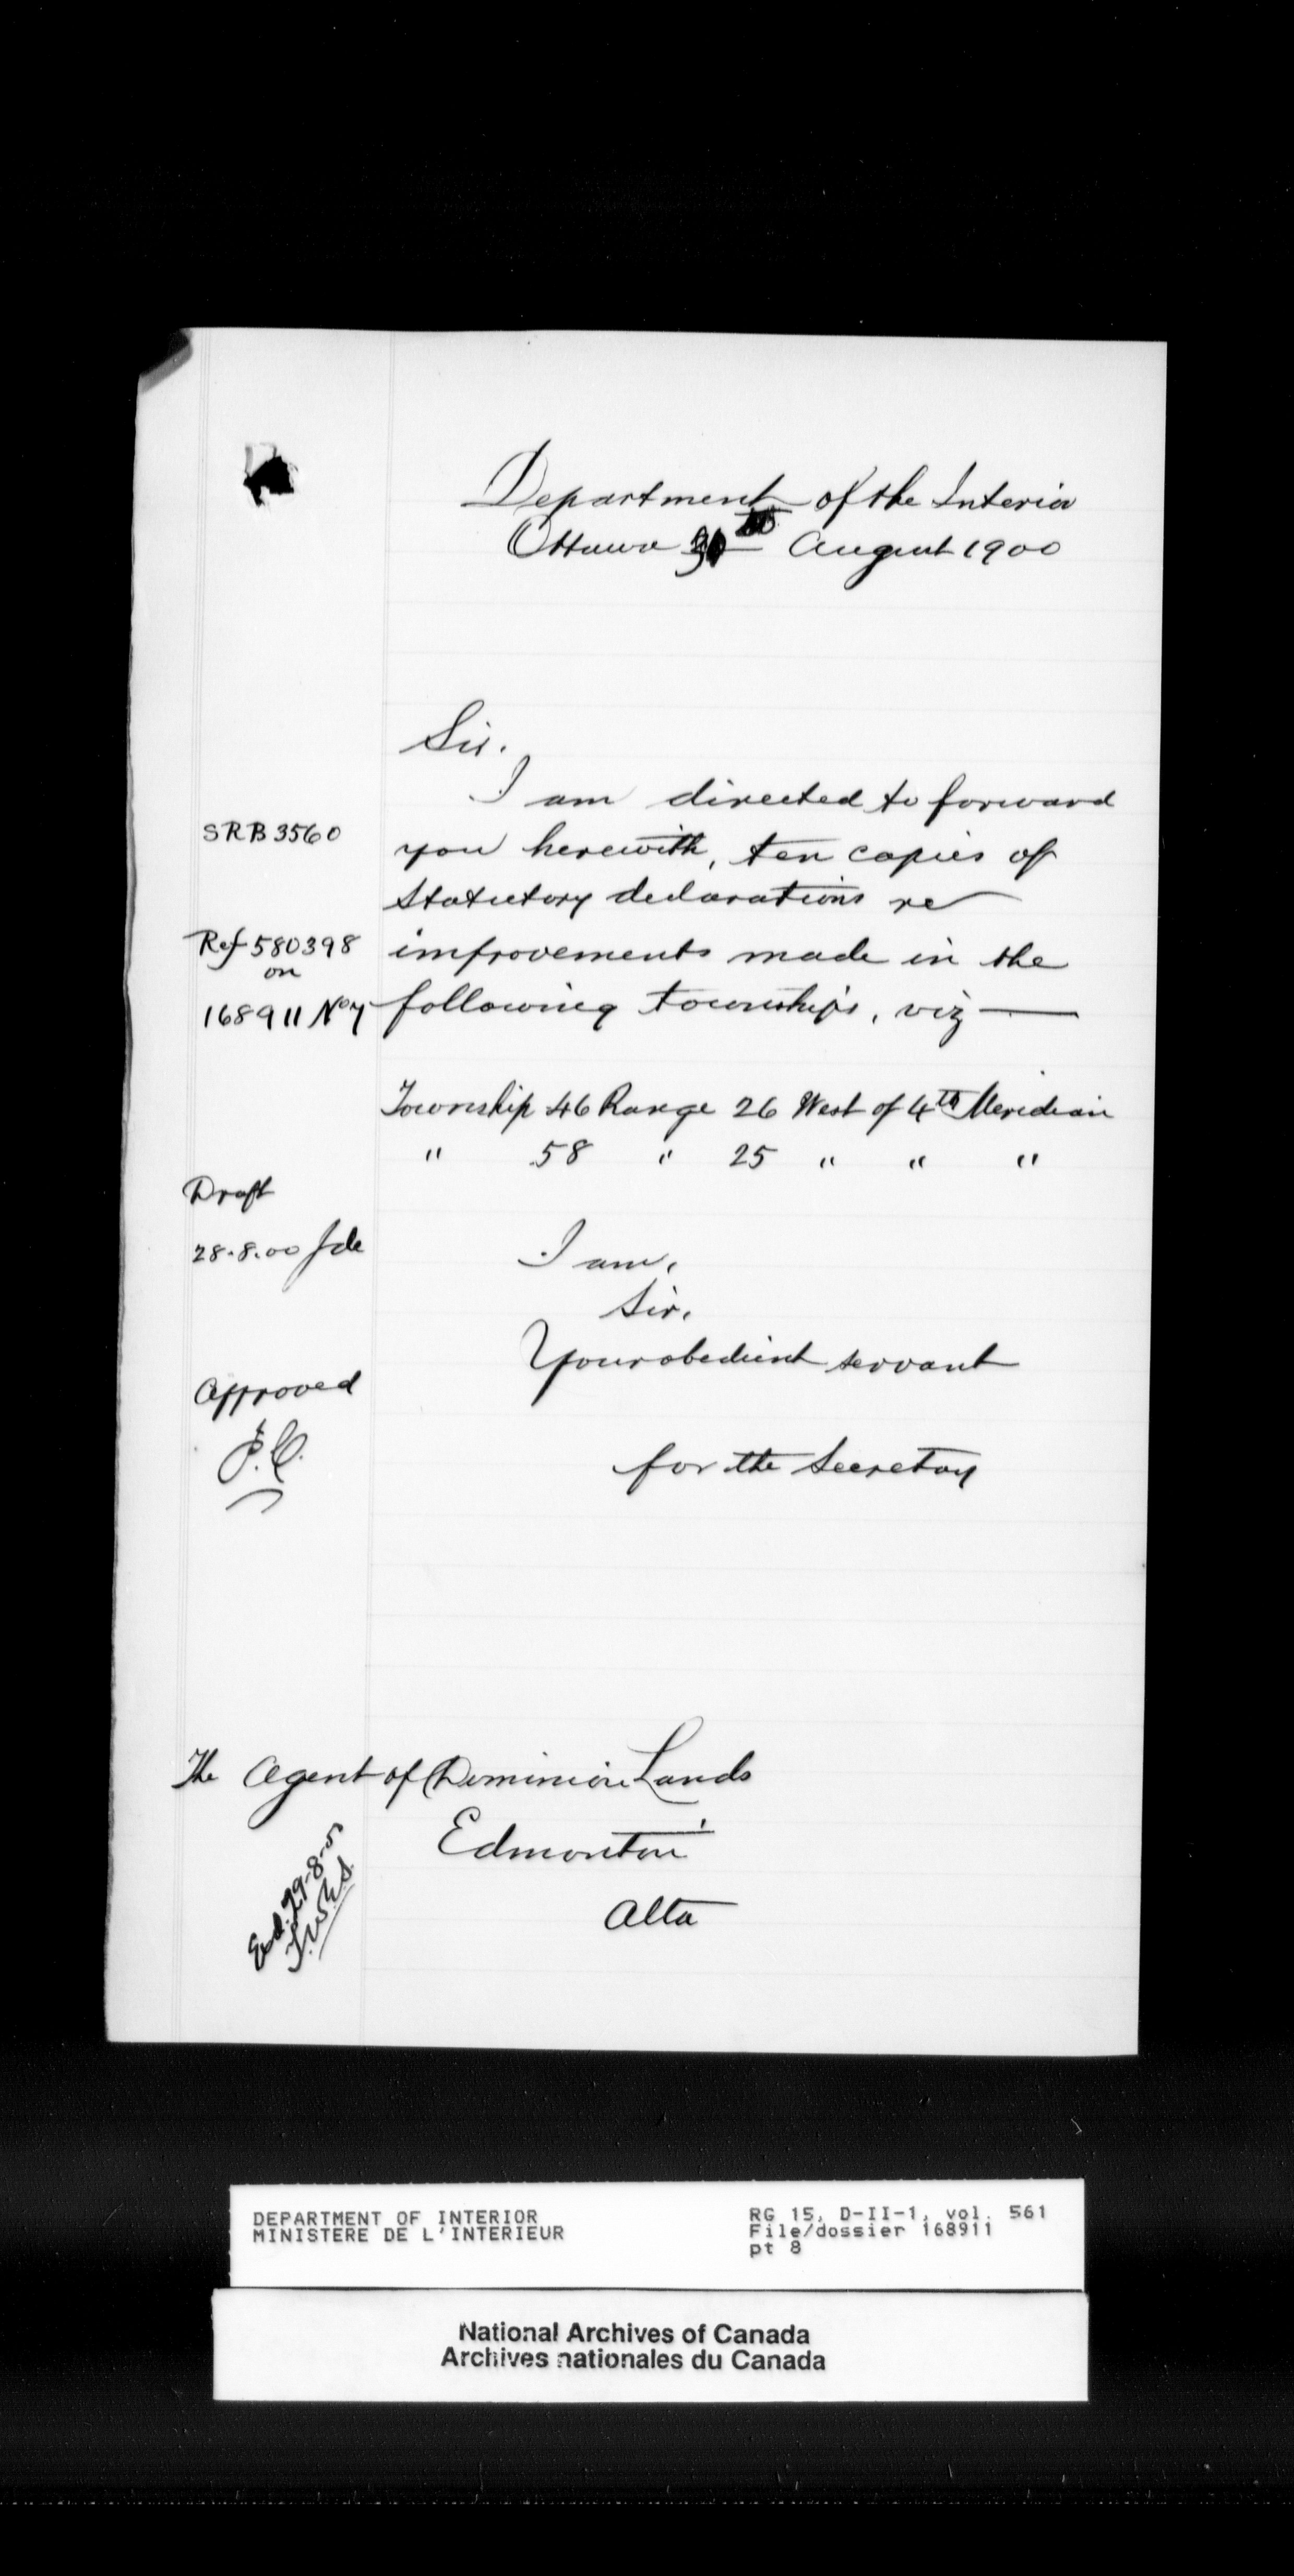 Department of the Interior
Ottawa 31st August 1900
Sir.
I am directed to forward
SRB 3560
you herewith, ten copies of
Statutory declarations re
Ref 580398
on
168911 No 7
improvements made in the
following townships, viz —
Township 46 Range 26 West of 4th Meridian
" 58 " 25 " " "
Draft
28.8.00
I am,
Sir,
Your obedient servant
Approved
for the Secretary
The Agent of Dominion Lands
Edmonton
Alta
DEPARTMENT OF INTERIOR
MINISTERE DE L'INTERIEUR
RG 15, D-II-1, vol. 561
File/dossier 168911
pt 8
National Archives of Canada
Archives nationales du Canada